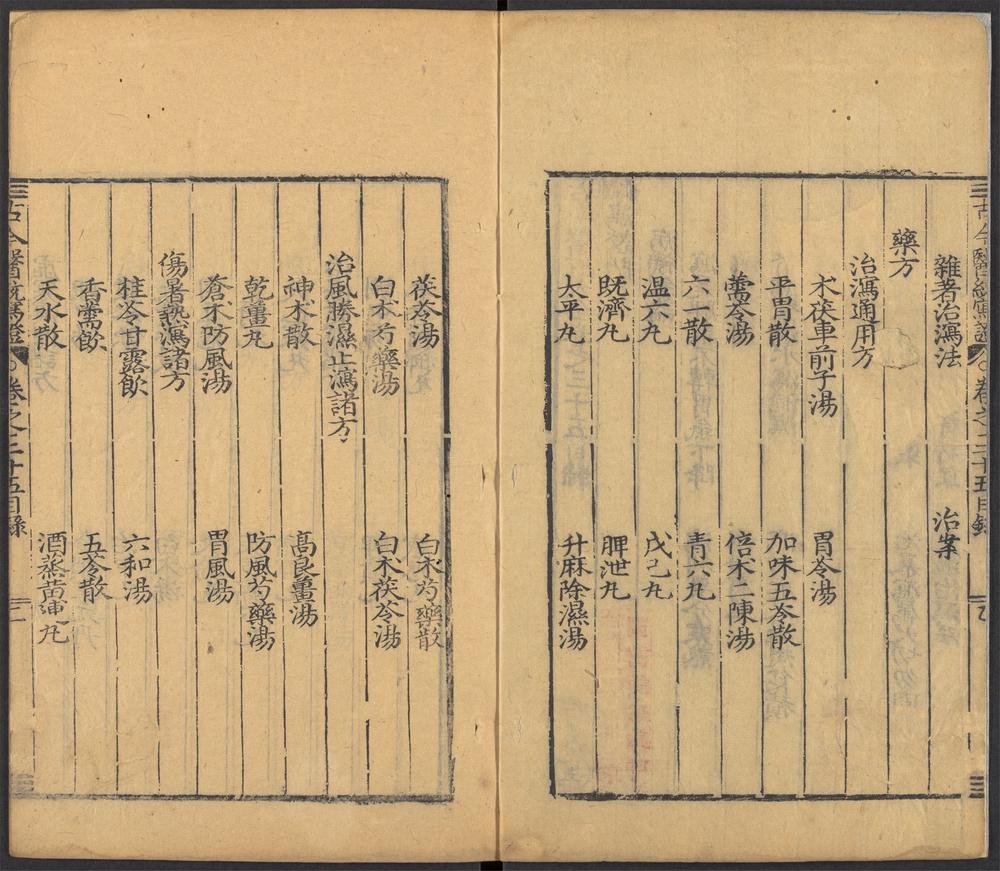 雜著治瀉法　治案
藥方
治瀉通用方
朮茯車前子湯　胃苓湯
平胃散　加味五苓散
薷苓湯　倍朮二陳湯
六一散　青六丸
温六丸　戊己丸
既濟丸　脾泄丸
太平丸　升麻除濕湯
茯苓湯　白朮芍藥散
白朮芍藥湯　白朮茯苓湯
治風勝濕止瀉諸方
神朮散　高良薑湯
乾薑丸　防風芍藥湯
蒼朮防風湯　胃風湯
傷暑熱瀉諸方
桂苓甘露飲　六和湯
香薷飲　五苓散
天水散　酒蒸黃連丸
古今醫統瀉證　卷之三十五目録　二